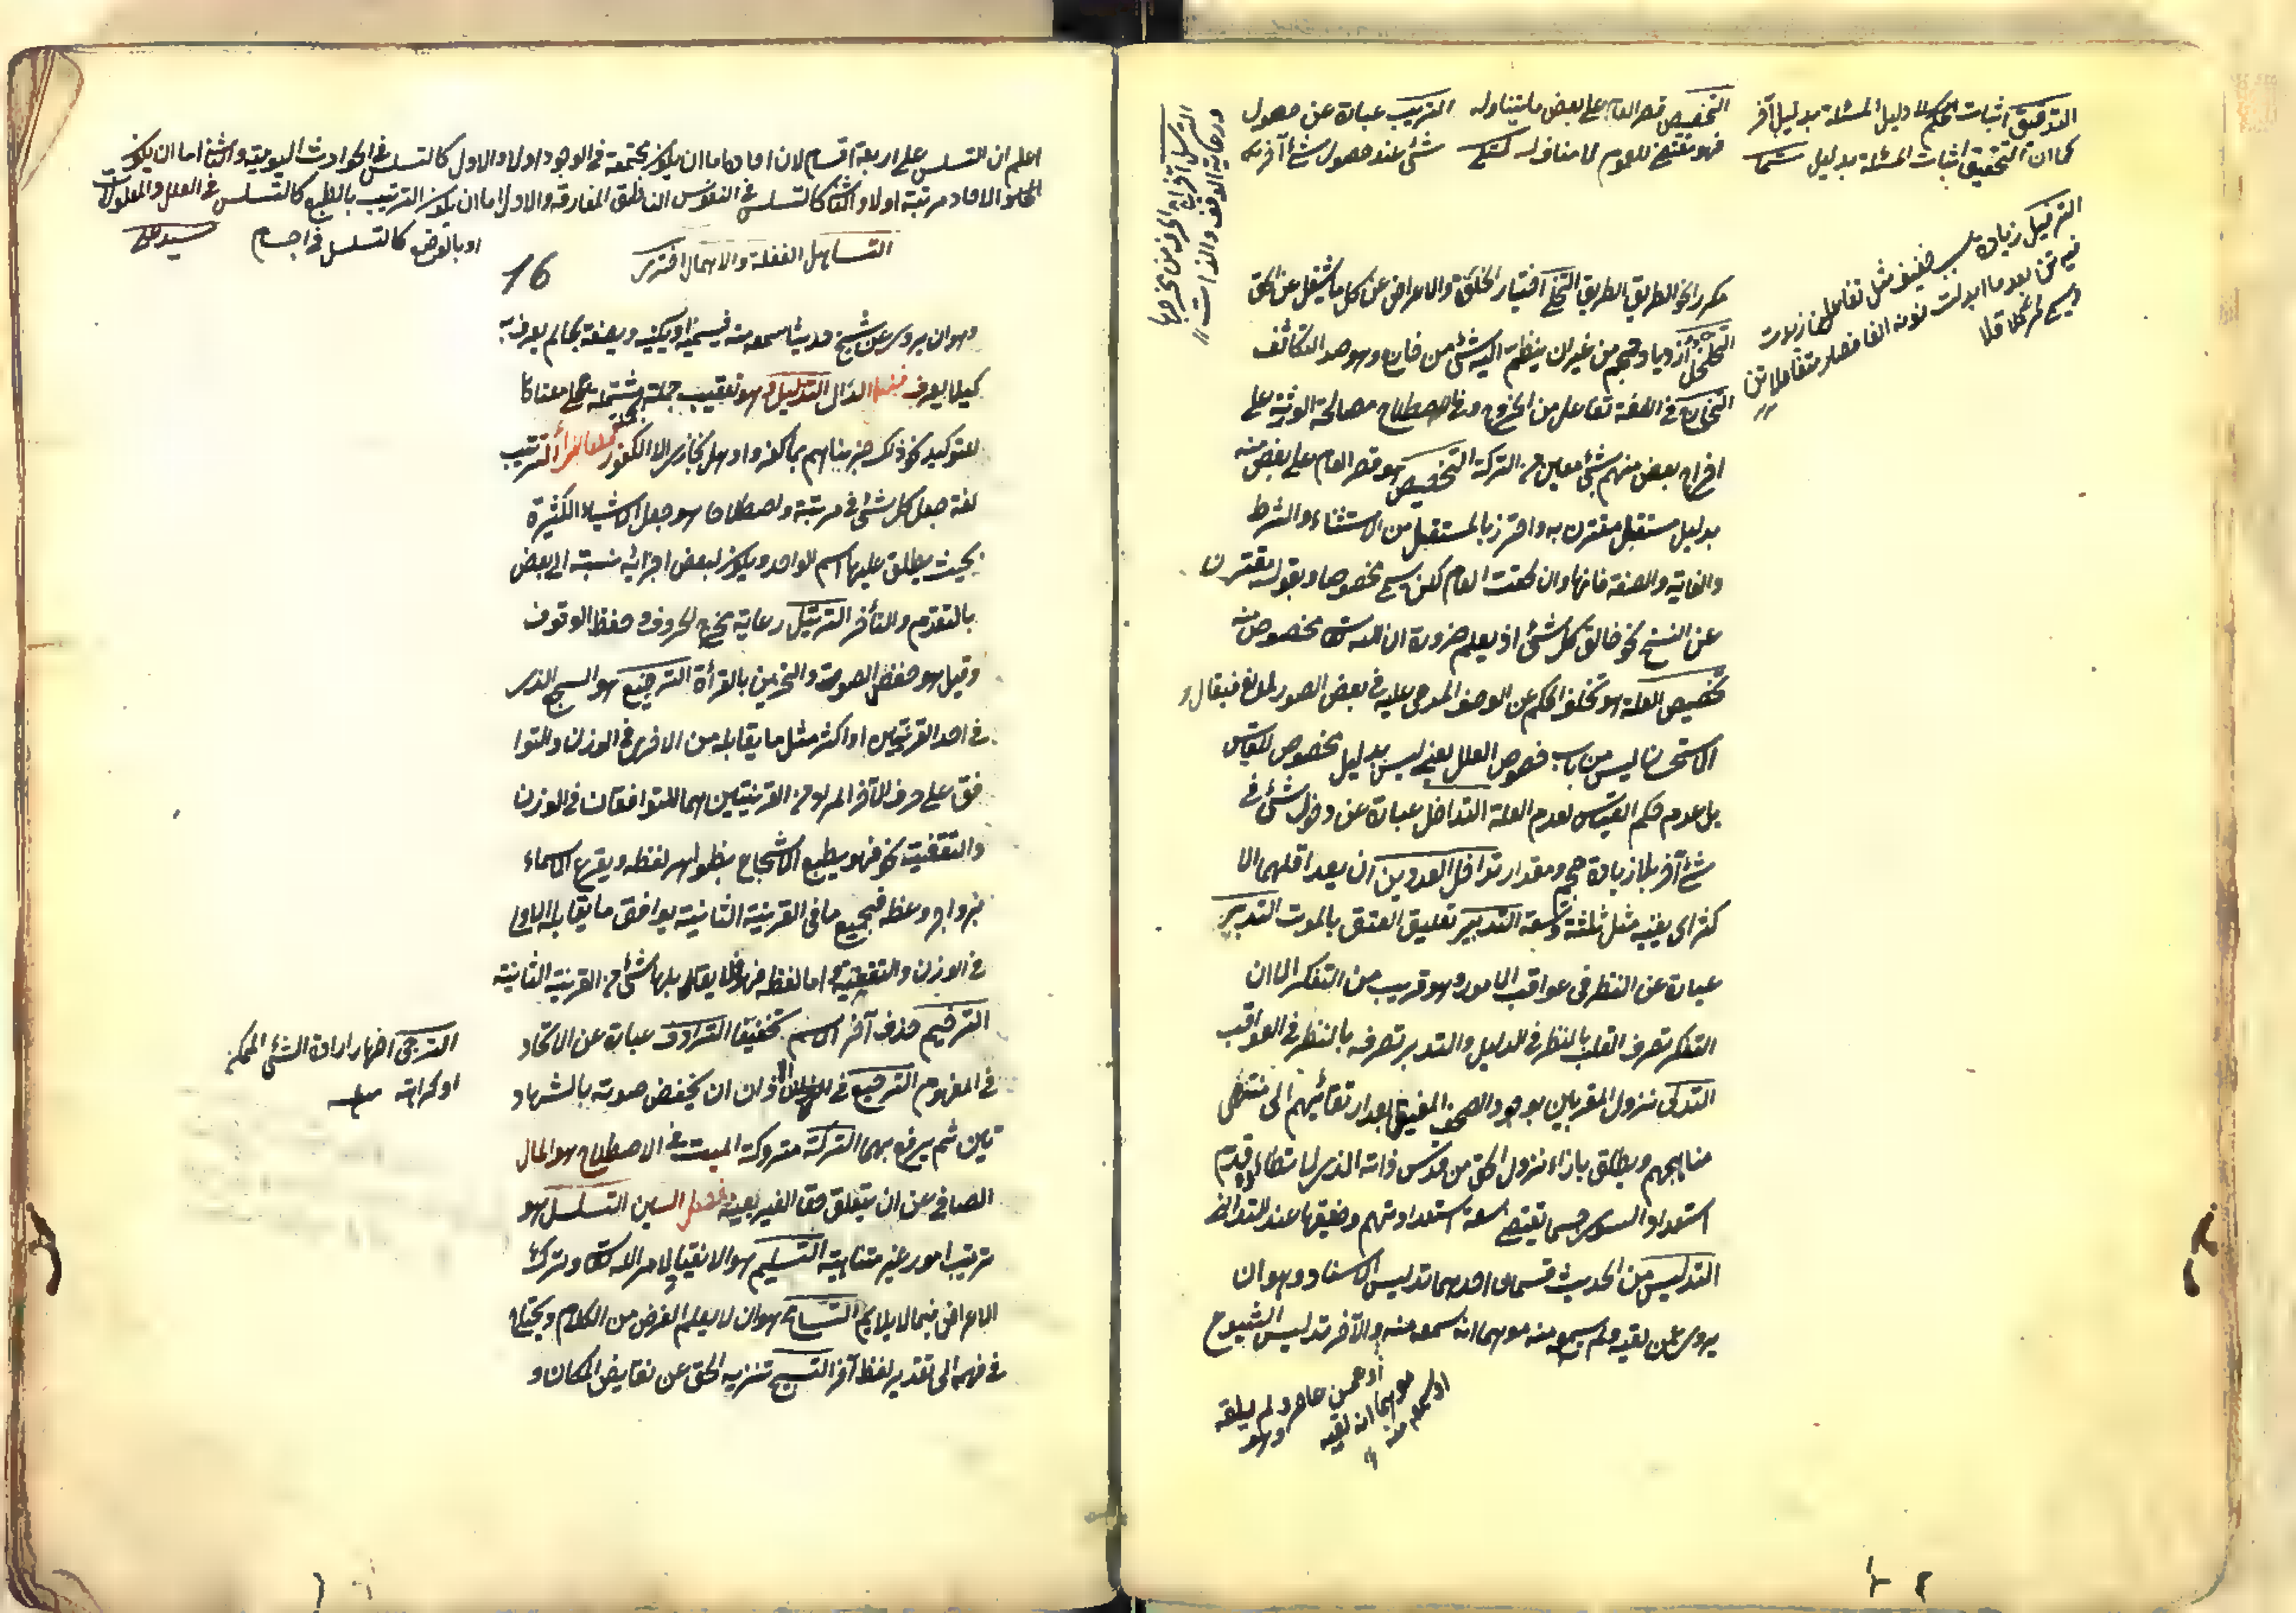 التدقيق اثبات دليل المسئلة بدليل آخر
كما ان التحقيق اثبات المسئلة بدليل
التخصيص قصر العام على بعض ما يتناوله
الترتيب عبارة عن حصول
شئ عند حصول شئ آخر
الترفيل زيادة سبب خفيف مثل متفاعلن زيدت
فيه تن بعد ما ابدلت نونه الفا فصار متفاعلاتن
ويسمى مرفلا
مكرر الخ الطريق الطريق التخلى اختيار الخلوة والاعراض عن كل ما يشغل عن الحق
التخلخل ازدياد حجم من غير ان ينظم اليه شئ من خارج وهو ضد التكاثف
التخارج فى اللغة تفاعل من الخروج وفى الاصطلاح مصالحة الورثة على
اخراج بعض منهم بشئ معين من التركة التخصيص هو قصر العام على بعض منه
بدليل مستقل مقترن به واحترز بالمستقل من الاستثناء والشرط
والغاية والصفة فانها وان لحقت العام لكن لا يسمى مخصوصا وبقوله مقترن
عن النسخ نحو خالق كل شئ اذ يعلم ضرورة ان الله تعالى مخصوص منه
تخصيص العلة هو تخلف الحكم عن الوصف المدعى عليه فى بعض الصور لمانع فيقال
الاستحسان ليس من باب خصوص العلل يعنى ليس بدليل مخصوص للقياس
بل عدم حكم القياس لعدم العلة التداخل عبارة عن دخول شئ فى
شئ آخر بلا زيادة حجم ومقدار تداخل العددين ان يعد اقلهما الا
كثر اى يفنيه مثل ثلثة وتسعة التدبير تعليق العتق بالموت التدبر
عبارة عن النظر فى عواقب الامور وهو قريب من التفكر الا ان
التفكر تصرف القلب بالنظر فى الدليل والتدبر تصرفه بالنظر فى العواقب
التدلى نزول المقربين بوجود الصحو المفيق بعد ارتقائهم الى منتهى
مناهجهم ويطلق بازاء نزول الحق من قدس ذاته الذى لا يطاؤه قدم
استعداد السوى حسبما تقتضى سعة استعداداتهم وضيقها عند التدانى
التدليس من الحديث قسمان احدهما تدليس الاسناد وهو ان
يروى عمن لقيه ولم يسمعه منه موهما انه سمعه منه والآخر تدليس الشيوخ
او عمن عاصره ولم يلقه
موهما انه لقيه
او سمعه منه
اعلم ان التسلسل على اربعة اقسام لان احاده اما ان يكون مجتمعة فى الوجود اولا والاول كالتسلسل فى الحوادث اليومية والثانى اما ان يكون
الاحاد مرتبة اولا والثانى كالتسلسل فى النفوس الناطقة المفارقة والاول اما ان يكون الترتيب بالطبع كالتسلسل فى العلل والمعلولات
او بالوضع كالتسلسل فى اجسام
سيد على
التساهل الغفلة والاهمال
16
وهو ان يروى عن شيخ حديثا سمعه منه فيسميه او يكنيه ويصفه بما لم يعرف به
كيلا يعرف فصل الذال التذييل وهو تعقيب جملة بجملة مشتملة على معناها
للتوكيد نحو ذلك جزيناهم بما كفروا وهل نجازى الا الكفور فصل الراء الترتيب
لغة جعل كل شئ فى مرتبة واصطلاحا هو جعل الاشياء الكثيرة
بحيث يطلق عليها اسم الواحد ويكون لبعض اجزائه نسبة الى بعض
بالتقدم والتأخر الترتيل رعاية مخارج الحروف وحفظ الوقوف
وقيل هو خفض الصوت والتحزين بالقرأة الترصيع هو السجع الذى
فى احد القرينتين او اكثر مثل ما يقابله من الاخرى فى الوزن والتوا
فق على حرف الآخر المراد من القرينتين هما المتوافقان فى الوزن
والتقفية نحو فهو يطبع الاسجاع بظواهر لفظه ويقرع الاسماع
بزواجر وعظه فجميع ما فى القرينة الثانية يوافق ما يقابله الاولى
فى الوزن والتقفية واما لفظه فهو فلا يقابلها شئ من القرينة الثانية
الترخيم حذف آخر الاسم تخفيفا الترادف عبارة عن الاتحاد
فى المفهوم الترجيع فى الاذان ان يخفض صوته بالشهاد
تين ثم يرفع بهما التركة متروكة الميت فى الاصطلاح هو المال
الصافى عن ان يتعلق حق الغير بعينه فصل السين التسلسل هو
ترتيب امور غير متناهية التسليم هو الانقياد لامر الله تعالى وترك
الاعراض فيما لا يلايم التسامح هو ان لا يعلم الغرض من الكلام ويحتاج
فى فهمه الى تقدير لفظ آخر التسبيح تنزيه الحق عن نقايص الامكان و
الترجى اظهار ارادة الشئ الممكن
او كراهته